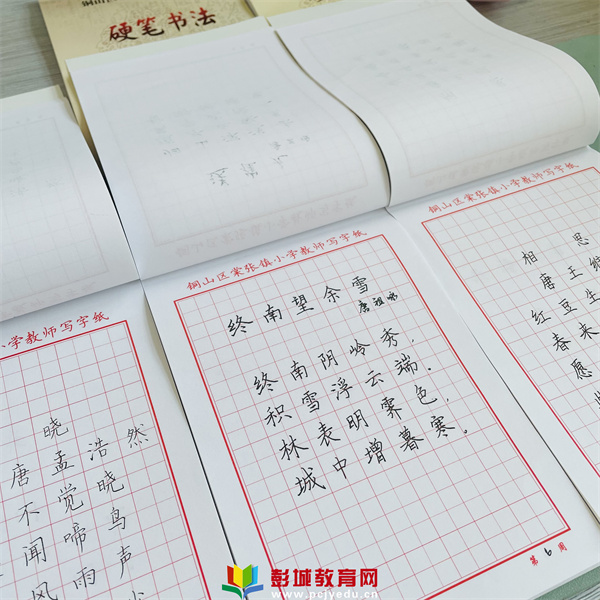 硬笔书法
铜山区棠张镇小学教师写字纸
终南望余雪
唐祖咏
终南阴岭秀，
积雪浮云端。
林表明霁色，
城中增暮寒。
第6周
小学教师写字纸
晓
唐 孟浩然
不觉晓
闻啼鸟
风雨声
铜山区棠张镇小学教师写字纸
相思
唐 王维
红豆生
春来
愿
彭城教育网
www.pcjyedu.cn